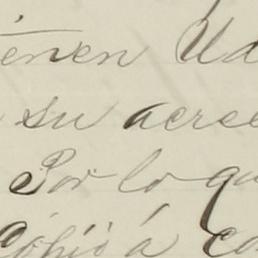 ienen Ud
su acree
Por lo qu
cópió á co